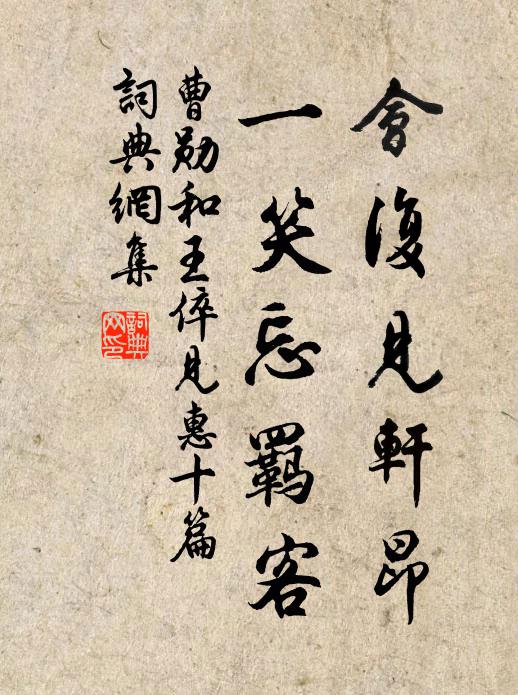 會復見軒昂
一笑忘羈客
曹勛和王倅見惠十篇
詞典網集
詞典網印